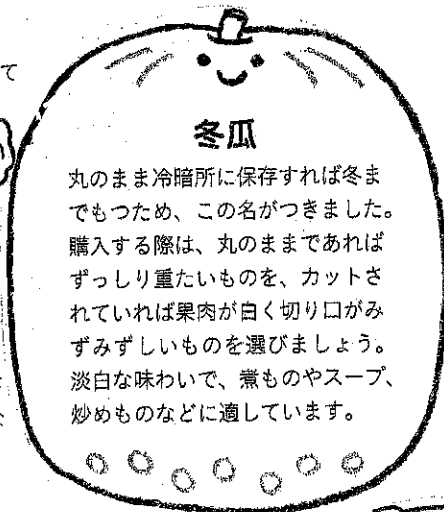 て
冬瓜
丸のまま冷暗所に保存すれば冬ま
でもつため、この名がつきました。
購入する際は、丸のままであれば
ずっしり重たいものを、カットさ
れていれば果肉が白く切り口がみ
ずみずしいものを選びましょう。
淡白な味わいで、煮ものやスープ、
炒めものなどに適しています。